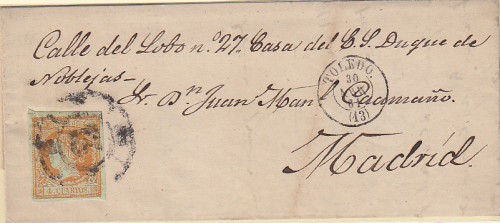 Calle del Lobo n.º 27. Casa del E. S. Duque de
Noblejas—
Sr. Dn. Juan Man. Caamaño.
Madrid.
TOLEDO.
30
(13)
4 CUARTOS